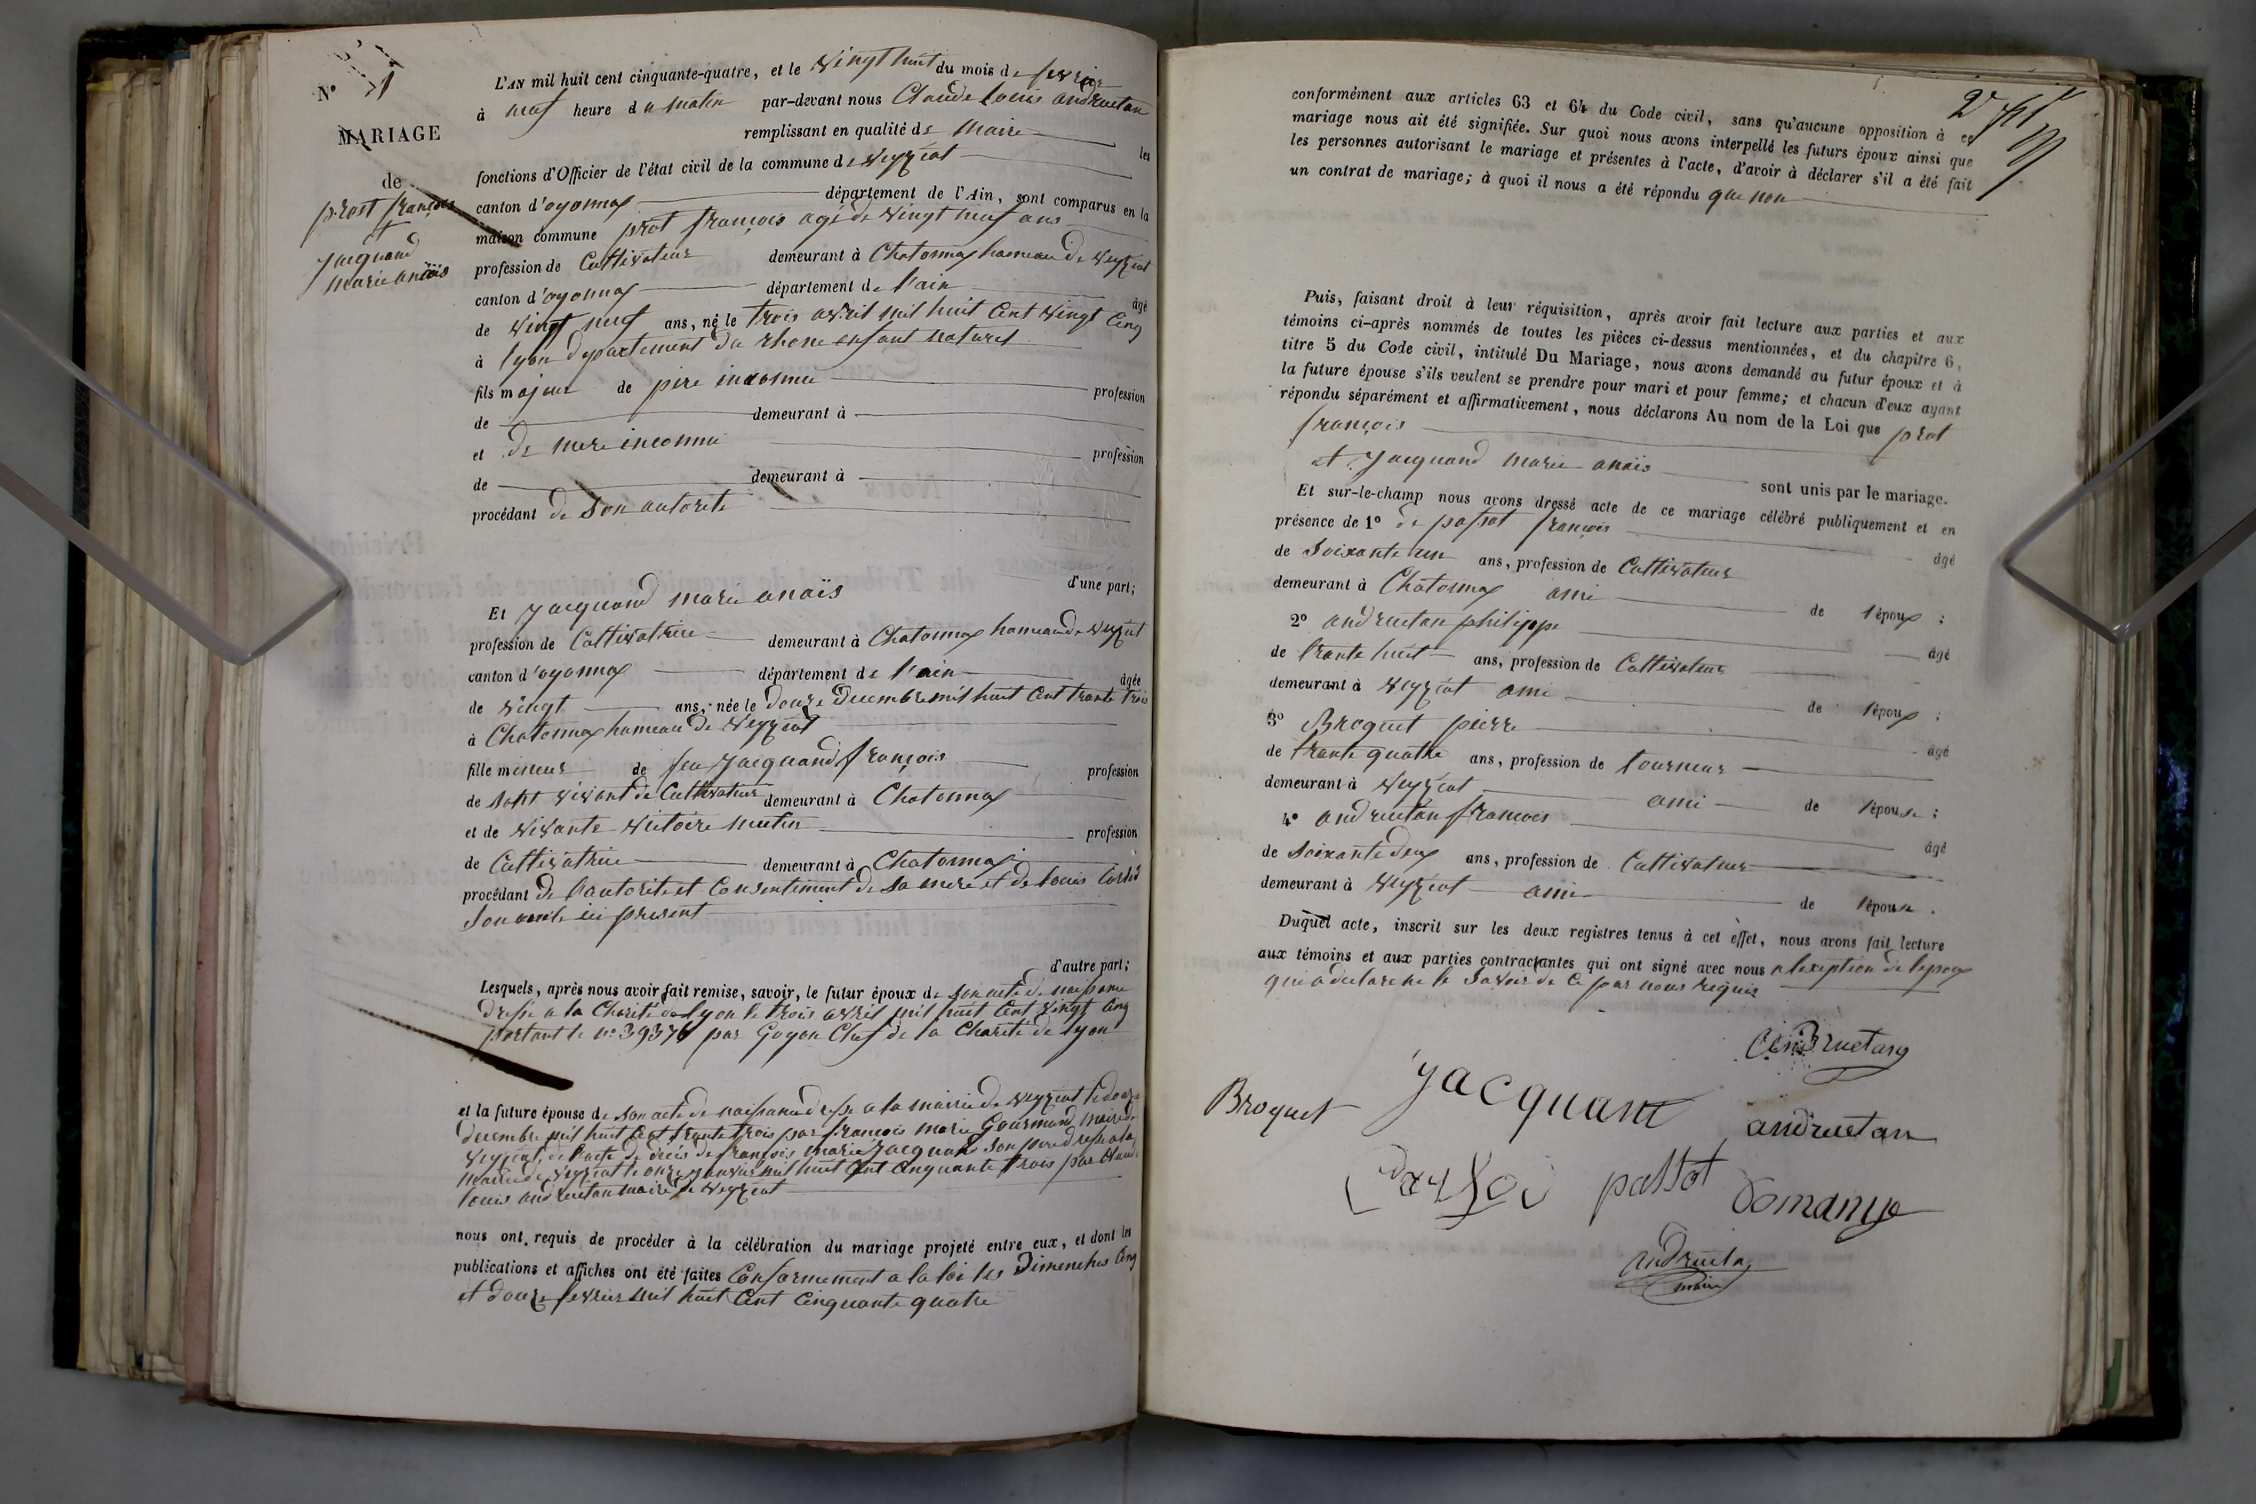 N° 1
MARIAGE
de
prost françois
et
jacquand
marie anaïs
L'AN mil huit cent cinquante-quatre, et le vingt huit du mois de fevrier
à neuf heure du matin par-devant nous Claude louis andruetan
remplissant en qualité de maire les
fonctions d'Officier de l'état civil de la commune de veyziat
canton d'oyonnax département de l'Ain, sont comparus en la
maison commune prot françois agé de vingt neuf ans
profession de Cultivateur demeurant à Chatonnax hameau de veyziat
canton d'oyonnax département de l'ain âgé
de vingt neuf ans, né le trois avril mil huit Cent vingt Cinq
à lyon departement du rhone enfant naturel
fils majeur de pere inconnu profession
de demeurant à
et de mere inconnu profession
de demeurant à
procédant de son autorite
d'une part;
Et jacquand marie anaïs
profession de Cultivatrice demeurant à Chatonnax hameau de veyziat
canton d'oyonnax département de l'ain âgée
de vingt ans, née le douze decembre mil huit Cent trante trois
à Chatonnax hameau de veyziat
fille mineur de feu jacquand françois profession
de sont vivant de Cultivateur demeurant à Chatonnax
et de vivante victoire mutin profession
de Cultivatrice demeurant à Chatonnax
procédant de l'autorite et Consentiment de sa mere et de louis
son oncle ici present
d'autre part;
Lesquels, après nous avoir fait remise, savoir, le futur époux de son acte de naissance
dressé a la Charité de lyon le trois avril mil huit Cent vingt Cinq
portant le n° 39376 par Goyon Chef de la Charité de lyon
et la future épouse de son acte de naissance dressé a la mairie de veyziat le douze
decembre mil huit Cent trante trois par françois marie Gourmand maire de
veyziat, de l'acte de décès de françois marie jacquand son pere dressé a la
mairie de veyziat le onze janvier mil huit Cent Cinquante trois par Claude
louis andruetan maire de veyziat
nous ont requis de procéder à la célébration du mariage projeté entre eux, et dont les
publications et affiches ont été faites Conformement a la loi les Dimenches Cinq
et douze fevrier mil huit Cent Cinquante quatre
conformément aux articles 63 et 64 du Code civil, sans qu'aucune opposition à ce
mariage nous ait été signifiée. Sur quoi nous avons interpellé les futurs époux ainsi que
les personnes autorisant le mariage et présentes à l'acte, d'avoir à déclarer s'il a été fait
un contrat de mariage; à quoi il nous a été répondu que non
Puis, faisant droit à leur réquisition, après avoir fait lecture aux parties et aux
témoins ci-après nommés de toutes les pièces ci-dessus mentionnées, et du chapitre 6,
titre 5 du Code civil, intitulé Du Mariage, nous avons demandé au futur époux et à
la future épouse s'ils veulent se prendre pour mari et pour femme; et chacun d'eux ayant
répondu séparément et affirmativement, nous déclarons Au nom de la Loi que prot
françois
et jacquand marie anaïs sont unis par le mariage.
Et sur-le-champ nous avons dressé acte de ce mariage célébré publiquement et en
présence de 1° de passot françois âgé
de soixante un ans, profession de Cultivateur
demeurant à Chatonnax ami de l'époux ;
2° andruetan philippe âgé
de trante huit ans, profession de Cultivateur
demeurant à veyziat ami de l'époux ;
3° Broquet pierre âgé
de trante quatre ans, profession de tourneur
demeurant à veyziat ami de l'épouse ;
4° andruetan francois âgé
de soixante deux ans, profession de Cultivateur
demeurant à veyziat ami de l'épouse .
Duquel acte, inscrit sur les deux registres tenus à cet effet, nous avons fait lecture
aux témoins et aux parties contractantes qui ont signé avec nous a l'exeption de l'epoux
qui a declare ne le savoir de Ce par nous requis
andruetang
jacquant
Broquet
andruetan
passot
Domange
andruetan
maire